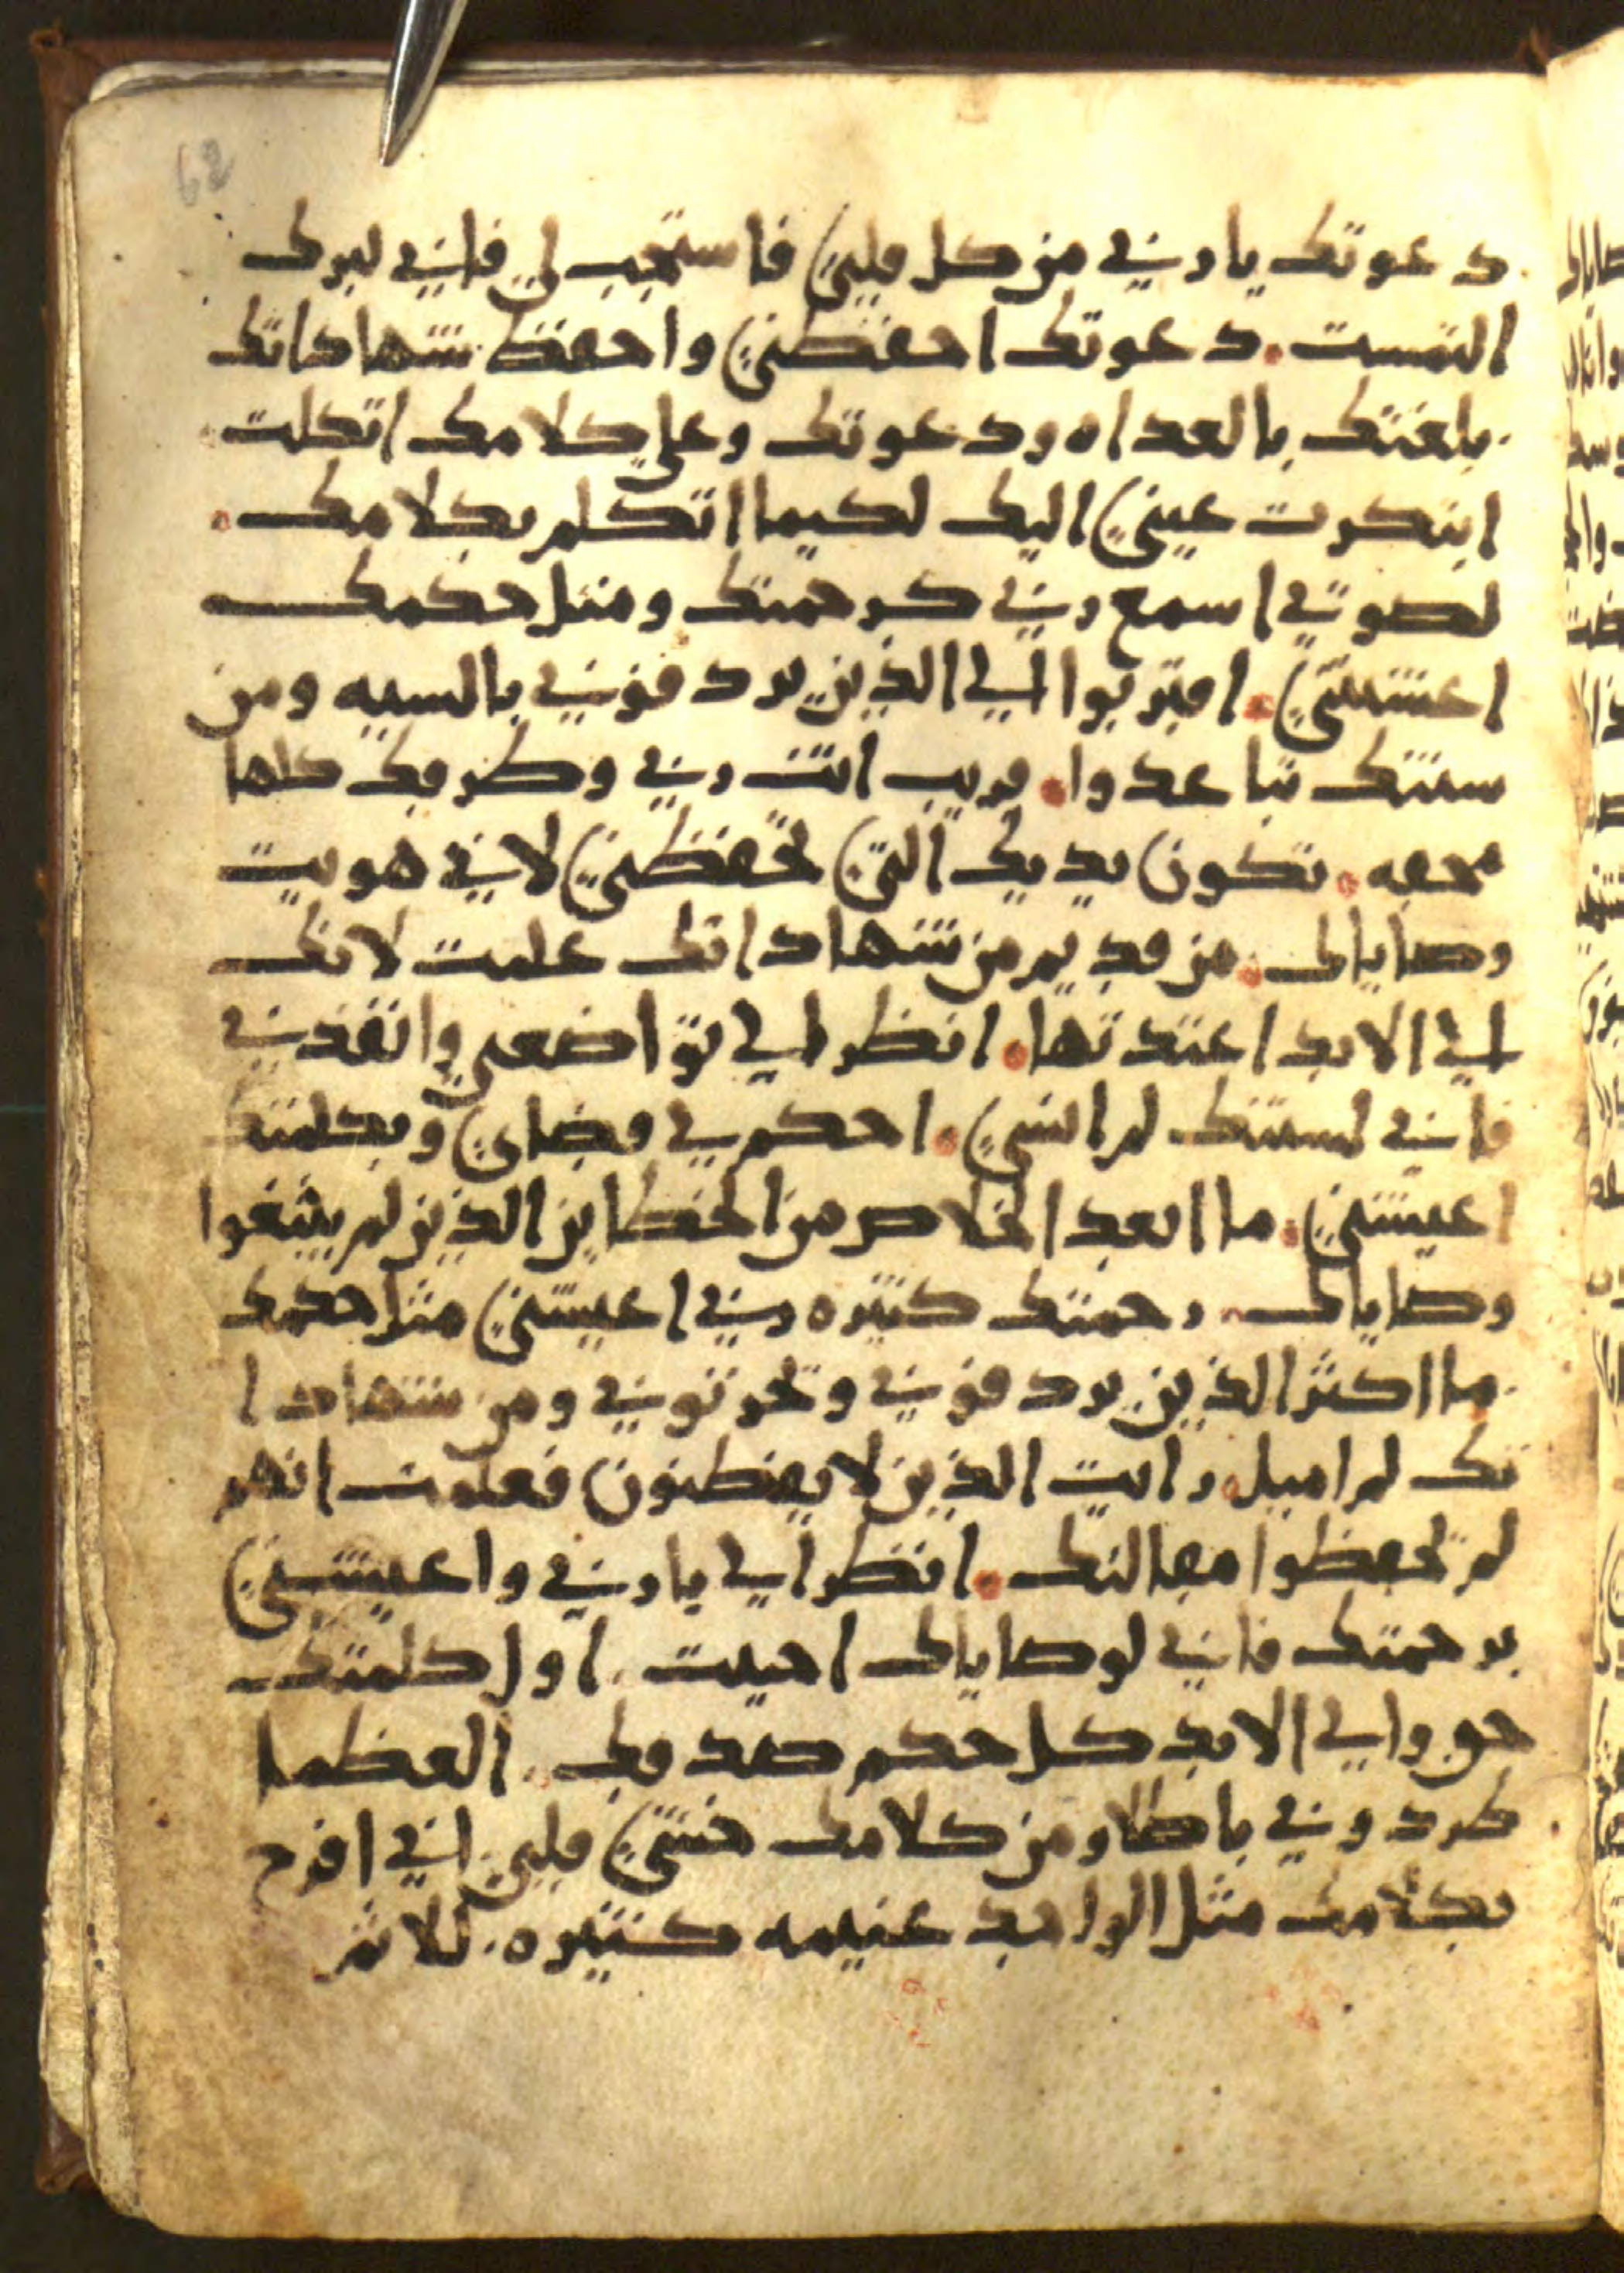 62
دعوتك يا ربي من كل قلبي فاستجب لي فاني لبرك
التمست. دعوتك احفظني واحفظ شهاداتك
بلغتك بالغداه ودعوتك وعلي كلامك اتكلت
ابتكرت عيني اليك لكيما اتكلم بكلامك.
لصوتي اسمع ربي كرحمتك ومثل حكمك
اعيشني. اقتربوا الي الذين يردفوني بالسيه ومن
سنتك تباعدوا. قريب انت ربي وطرقك كلها
محقه. تكون يديك التي تحفظني لاني هويت
وصاياك. من قديم من شهاداتك علمت لانك
الي الابد اعتدتها. انظر الي تواضعي وانقذني
فاني لسنتك لم انسي. احكم لي قضاي وبكلمتك
اعيشني. ما ابعد الخلاص من الخطايين الذين لم يبتغوا
وصاياك. رحمتك كثيره ربي اعيشني مثل حكمك
ما اكثر الذين يردفوني وتحزنوني ومن شهادا
تك لم اميل. رايت الذين لا يفطنون فعلمت انهم
لم تحفظوا مقالتك. انظر الي يا ربي واعيشني
برحمتك فاني لوصاياك احببت. اول كلمتك
حق والي الابد كل حكم صدقك. العظما
طردوني باطلا ومن كلامك خشي قلبي. اني افرح
بكلامك مثل الواجد غنيمه كثيره. للاثم